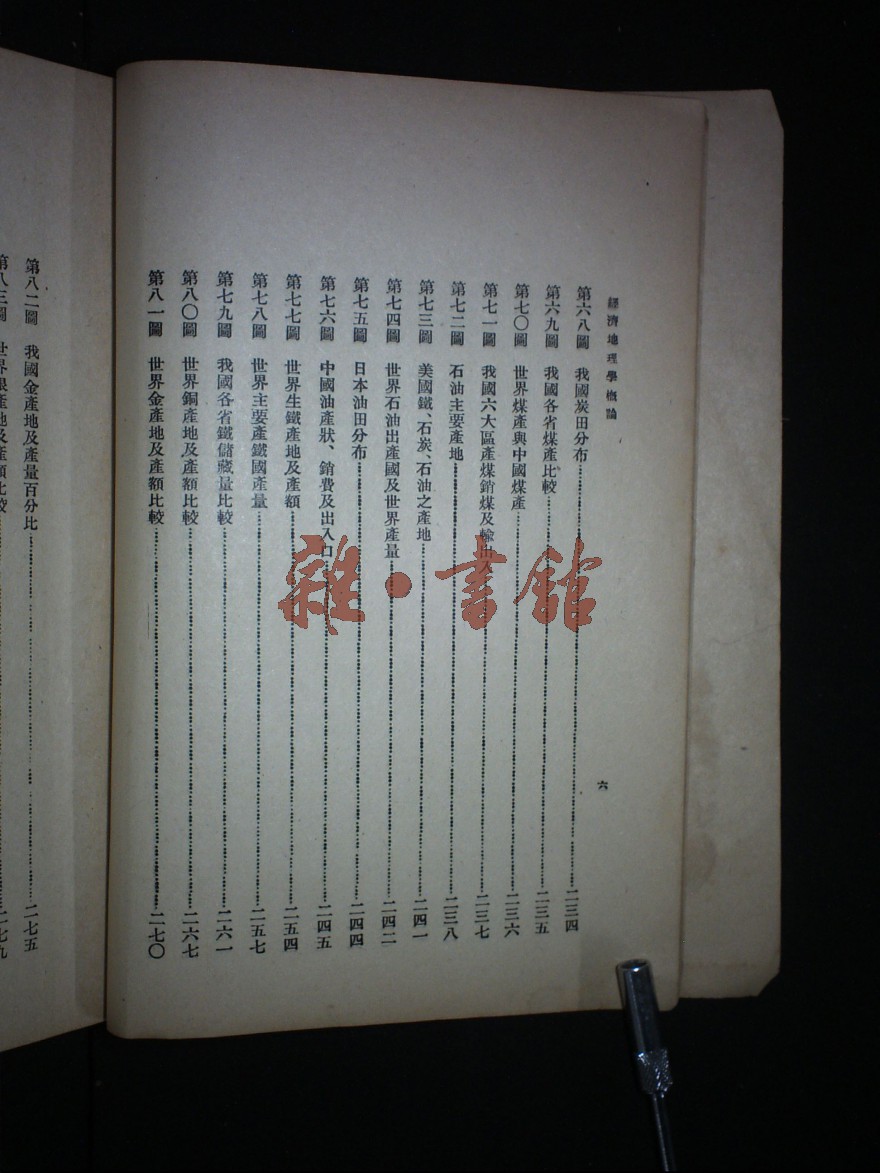 經濟地理學概論
六
第六八圖 我國炭田分布……二三四
第六九圖 我國各省煤產比較……二三五
第七〇圖 世界煤產與中國煤產……二三六
第七一圖 我國六大區產煤銷煤及輸出入……二三七
第七二圖 石油主要產地……二三八
第七三圖 美國鐵、石炭、石油之產地……二四一
第七四圖 世界石油出產國及世界產量……二四二
第七五圖 日本油田分布……二四四
第七六圖 中國油產狀、銷費及出入口……二四五
第七七圖 世界生鐵產地及產額……二五四
第七八圖 世界主要產鐵國產量……二五七
第七九圖 我國各省鐵儲藏量比較……二六一
第八〇圖 世界銅產地及產額比較……二六七
第八一圖 世界金產地及產額比較……二七〇
第八二圖 我國金產地及產量百分比……二七五
第八三圖 世界銀產地及產額比較……二七九
雜·書館